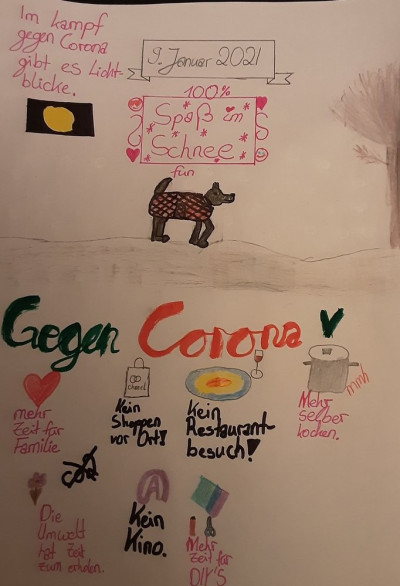 Im Kampf
gegen Corona
gibt es Licht-
blicke.
9. Januar 2021
100%
Spaß im
Schnee
fun
Gegen Corona
mehr
Zeit für
Familie
Kein
Shoppen
vor Ort!
Kein
Restaurant-
besuch!
mmh
Mehr
selber
kochen.
Die
Umwelt
hat Zeit
zum erholen.
Kein
Kino.
Mehr
Zeit für
DIY'S